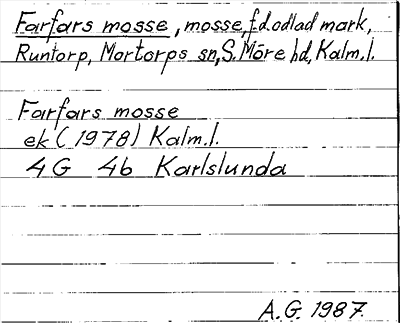 Farfars mosse, mosse, f.d. odlad mark,
Runtorp, Mortorps sn, S. Möre hd, Kalm.l.
Farfars mosse
ek (1978) Kalm.l.
4G 4b Karlslunda
A.G. 1987.